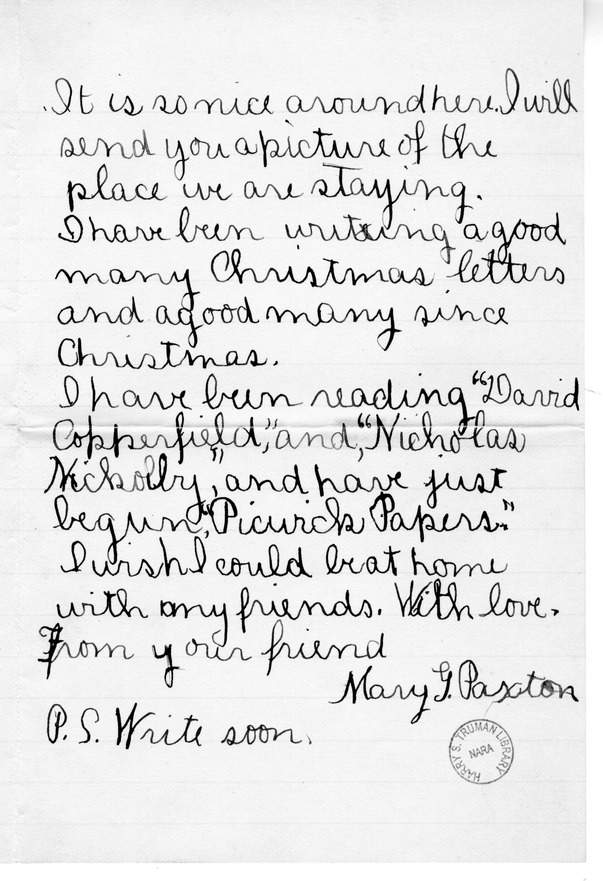 It is so nice around here. I will
send you a picture of the
place we are staying.
I have been writing a good
many Christmas letters
and a good many since
Christmas.
I have been reading "David
Copperfield," and, "Nicholas
Nickolby," and have just
begun, "Picwick Papers."
I wish I could be at home
with my friends. With love.
From your friend
Mary G. Paxton
P.S. Write soon.
HARRY S. TRUMAN LIBRARY
NARA